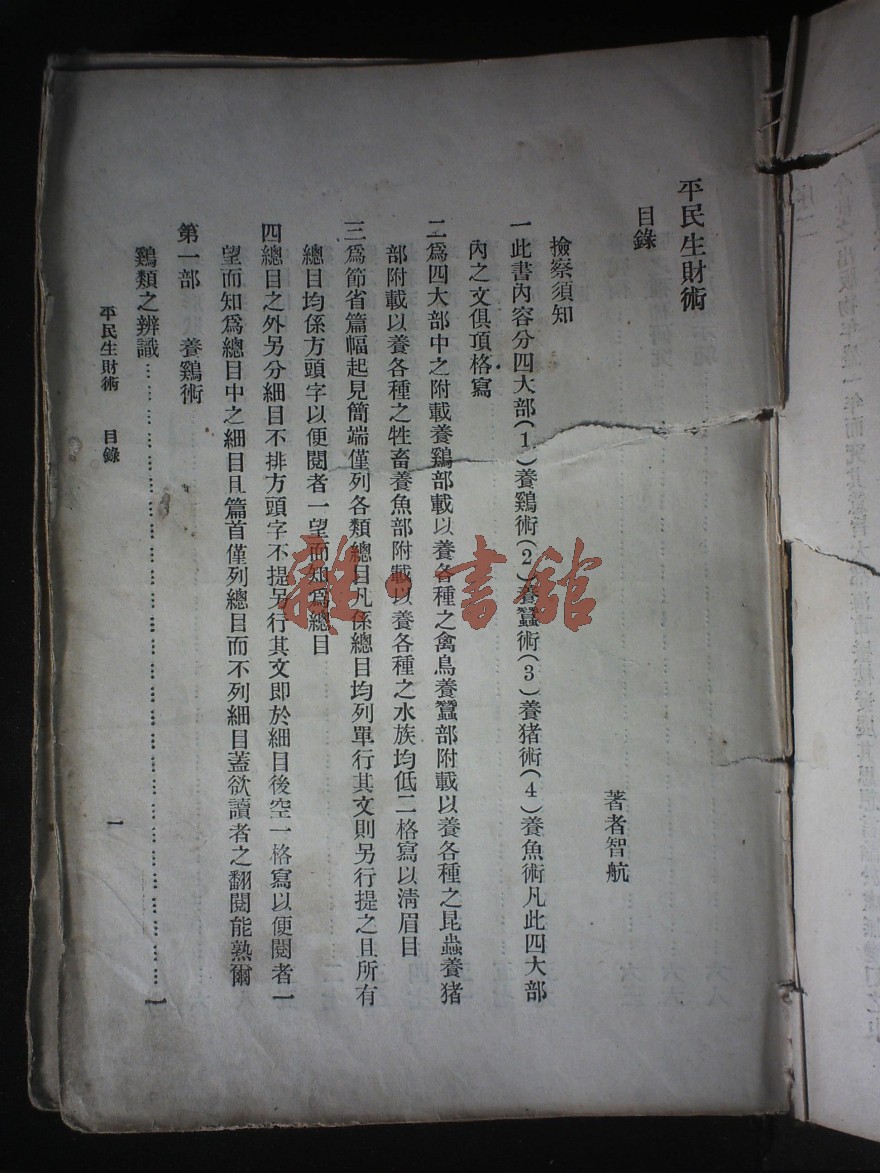 平民生財術
目錄
著者智航
撿察須知
一此書內容分四大部(1)養鷄術(2)養蠶術(3)養猪術(4)養魚術凡此四大部
內之文俱頂格寫
二爲四大部中之附載養鷄部載以養各種之禽鳥養蠶部附載以養各種之昆蟲養猪
部附載以養各種之牲畜養魚部附載以養各種之水族均低二格寫以清眉目
三爲節省篇幅起見簡端僅列各類總目凡係總目均列單行其文則另行提之且所有
總目均係方頭字以便閱者一望而知爲總目
四總目之外另分細目不排方頭字不提另行其文即於細目後空一格寫以便閱者一
望而知爲總目中之細目且篇首僅列總目而不列細目蓋欲讀者之翻閱能熟爾
第一部 養鷄術
鷄類之辨識………………………………………………一
平民生財術 目錄
一
雜·書館